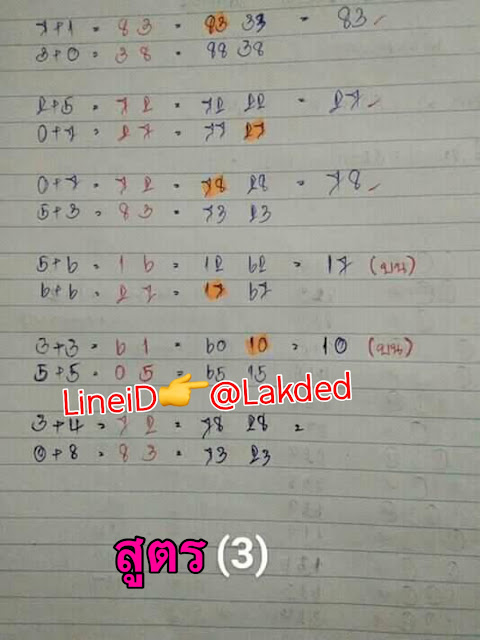 7+1 = 83 = 83 33 = 83 ✓
3+0 = 38 = 88 38
2+5 = 72 = 72 22 = 27 ✓
0+7 = 27 = 77 27
0+7 = 72 = 78 28 = 78 ✓
5+3 = 83 = 73 23
5+6 = 16 = 12 62 = 17 (บน)
6+6 = 27 = 17 67
3+3 = 61 = 60 10 = 10 (บน)
5+5 = 05 = 65 15
LineiD👉@Lakded
3+4 = 72 = 78 28 =
0+8 = 83 = 73 23
สูตร (3)